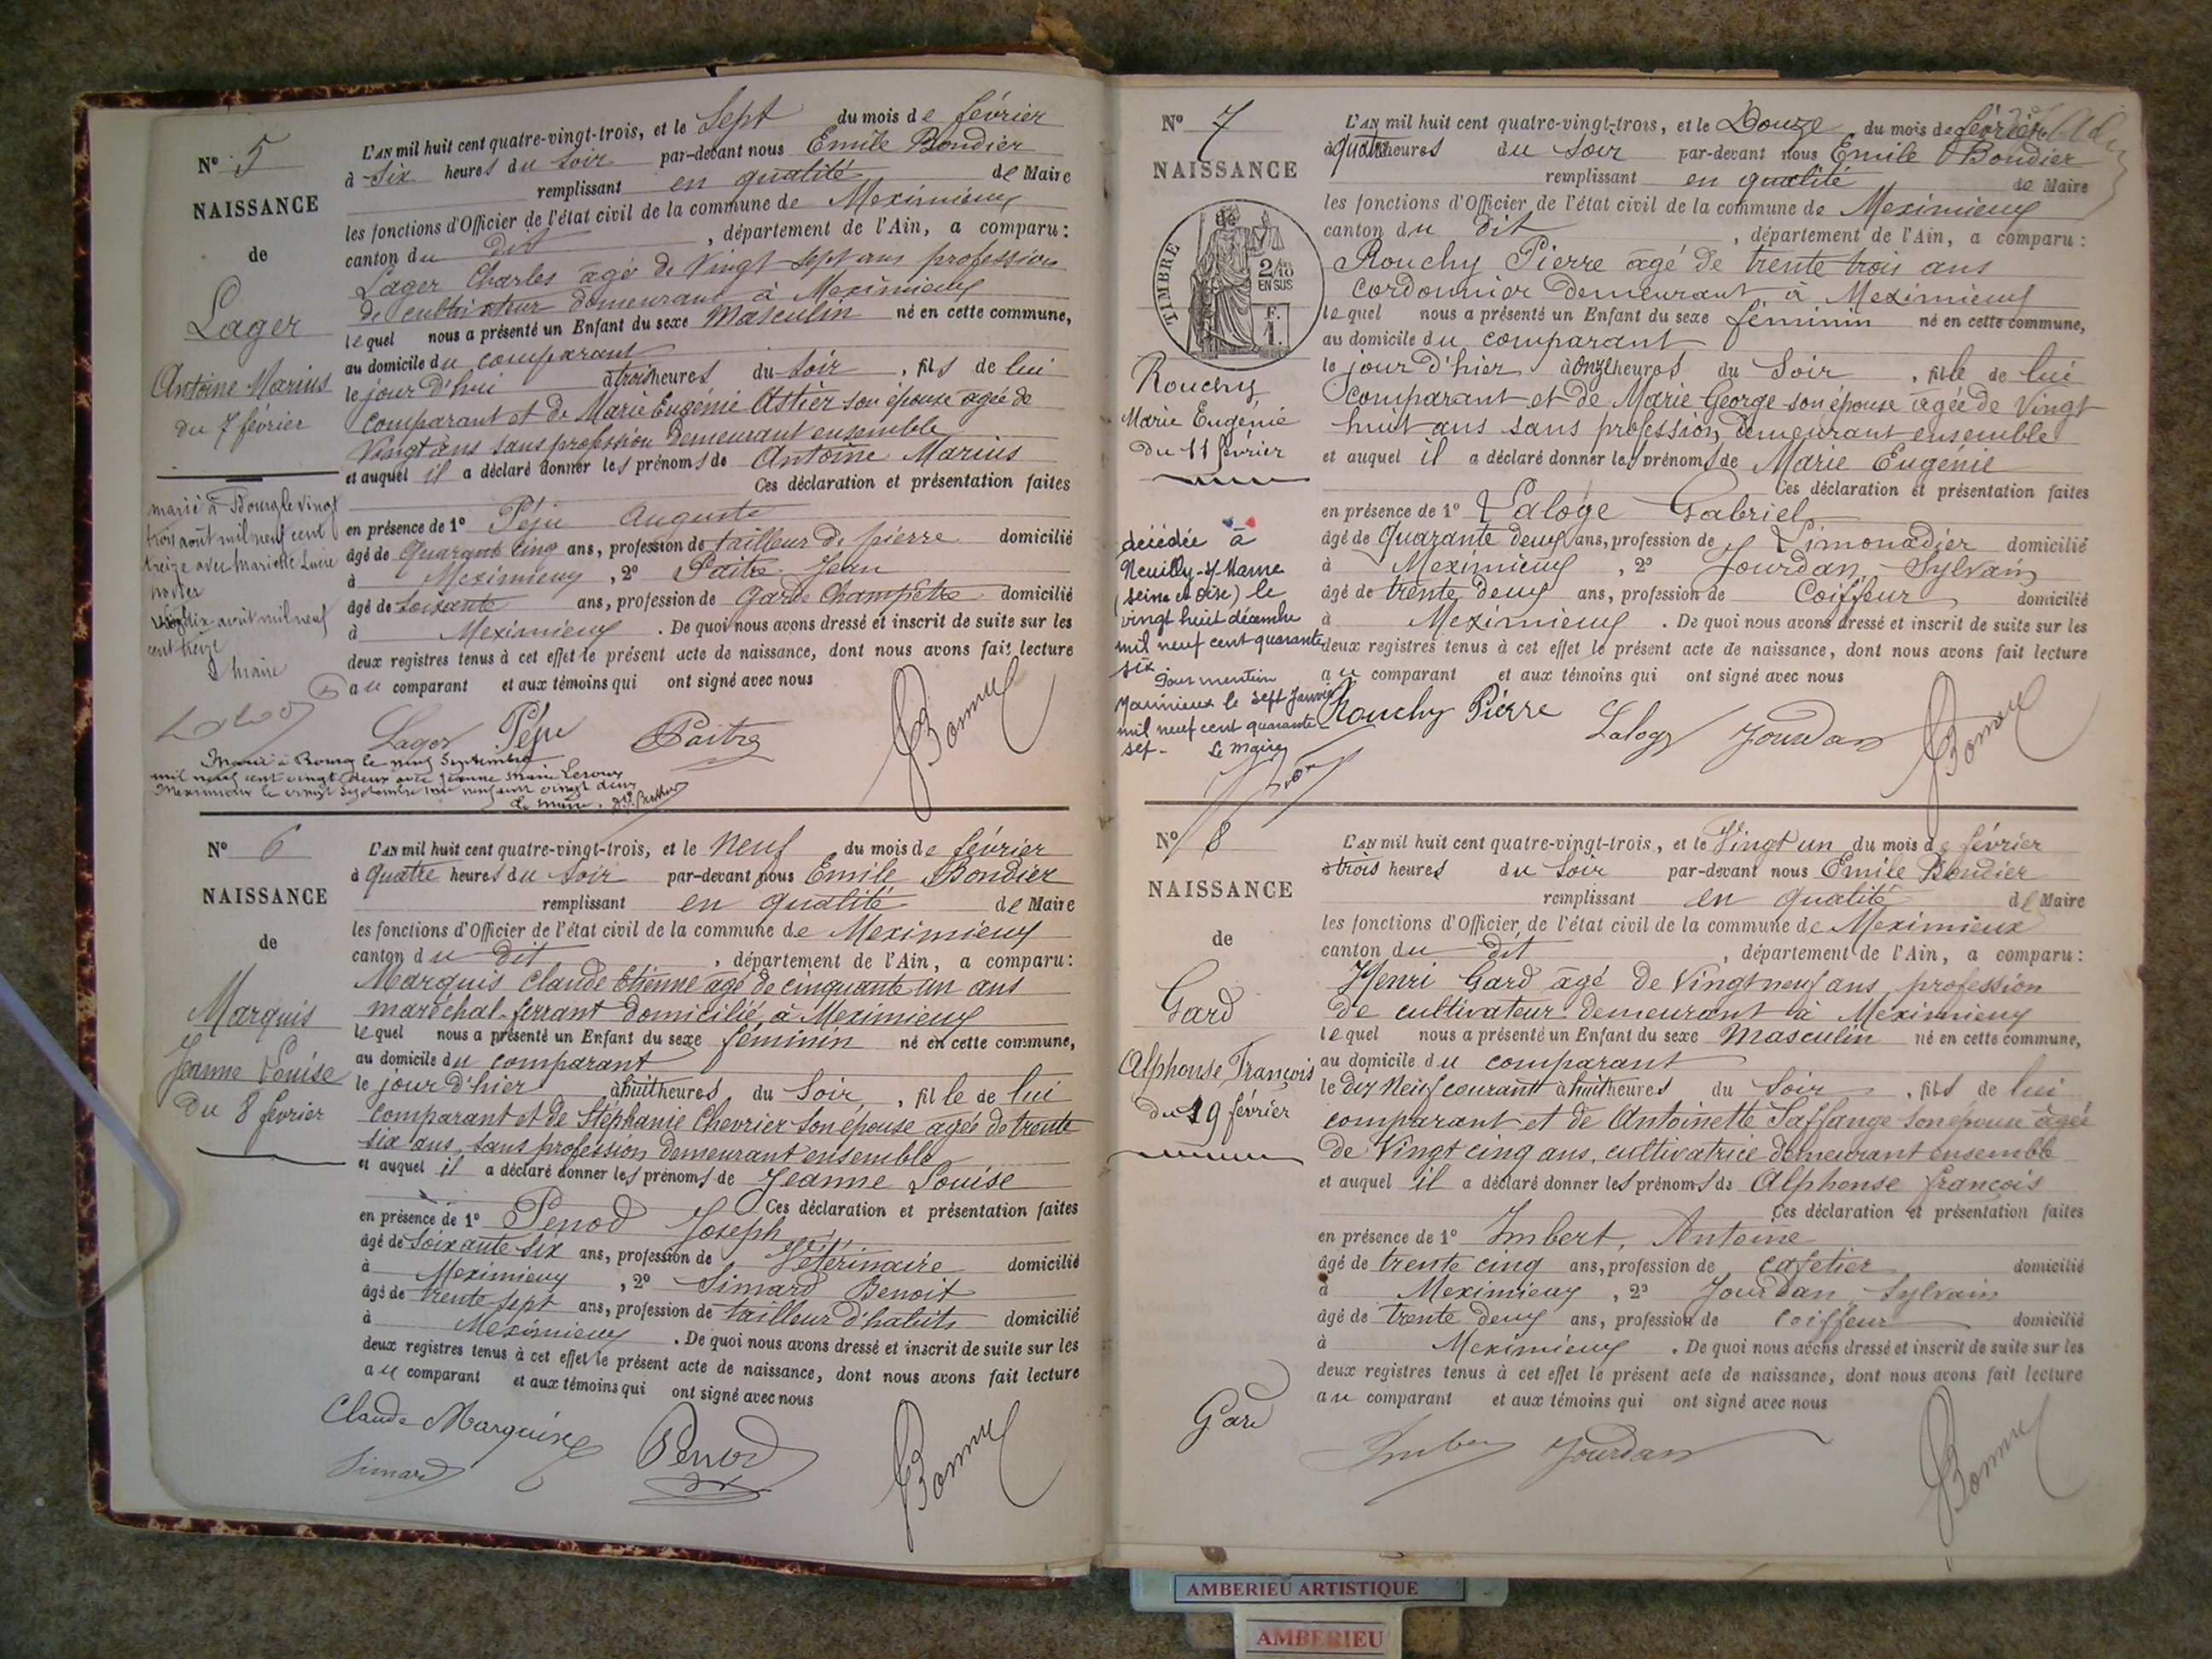 N° 5
NAISSANCE
de
Lager
Antoine Marius
du 7 février
marié à Bourg le vingt
trois août mil neuf cent
treize avec Mariette Lucie
août mil neuf
cent treize
Le maire
L'AN mil huit cent quatre-vingt-trois, et le Sept du mois de février
à Six heures du Soir par-devant nous Emile Bondier
remplissant en qualité de Maire
les fonctions d'Officier de l'état civil de la commune de Meximieux
canton du dit , département de l'Ain, a comparu :
Lager Charles âgé de Vingt sept ans profession
de cultivateur demeurant à Meximieux
lequel nous a présenté un Enfant du sexe Masculin né en cette commune,
au domicile du comparant
le jour d'hui à trois heures du Soir , fils de lui
comparant et de Marie Eugénie Astier son épouse âgée de
Vingt ans sans profession demeurant ensemble
et auquel il a déclaré donner les prénoms de Antoine Marius
Ces déclaration et présentation faites
en présence de 1° Péju Auguste
âgé de Quarante cinq ans, profession de tailleur de pierre domicilié
à Meximieux , 2° Paitre Jean
âgé de soixante ans, profession de Garde Champêtre domicilié
à Meximieux . De quoi nous avons dressé et inscrit de suite sur les
deux registres tenus à cet effet le présent acte de naissance, dont nous avons fait lecture
au comparant et aux témoins qui ont signé avec nous
Lager Péju Paitre
Marié à Bourg le neuf Septembre
mil neuf cent vingt deux avec Jeanne Marie Leroux
Meximieux le vingt Septembre mil neuf cent vingt deux
Le maire,
N° 6
NAISSANCE
de
Marquis
Jeanne Louise
Du 8 février
L'AN mil huit cent quatre-vingt-trois, et le Neuf du mois de février
à Quatre heures du Soir par-devant nous Emile Bondier
remplissant en qualité de Maire
les fonctions d'Officier de l'état civil de la commune de Meximieux
canton du dit , département de l'Ain, a comparu :
Marquis Claude Etienne âgé de cinquante un ans
maréchal-ferrant domicilié à Meximieux
lequel nous a présenté un Enfant du sexe féminin né en cette commune,
au domicile du comparant
le jour d'hier à huit heures du Soir , fille de lui
comparant et de Stéphanie Chevrier son épouse âgée de trente
six ans, sans profession demeurant ensemble
et auquel il a déclaré donner les prénoms de Jeanne Louise
Ces déclaration et présentation faites
en présence de 1° Penod Joseph
âgé de Soixante six ans, profession de Vétérinaire domicilié
à Meximieux , 2° Simard Benoit
âgé de trente sept ans, profession de tailleur d'habits domicilié
à Meximieux . De quoi nous avons dressé et inscrit de suite sur les
deux registres tenus à cet effet le présent acte de naissance, dont nous avons fait lecture
au comparant et aux témoins qui ont signé avec nous
Claude Marquis Penod
Simard
N° 7
NAISSANCE
TIMBRE
2/10
EN SUS
F.
1.
Rouchy
Marie Eugénie
Du 11 février
décédée à
Neuilly-s/-Marne
(Seine et Oise) le
vingt huit décembre
mil neuf cent quarante
six
Pour mention
Meximieux le sept Janvier
mil neuf cent quarante
sept-
Le maire
L'AN mil huit cent quatre-vingt-trois, et le Douze du mois de février
à quatre heures du Soir par-devant nous Emile Bondier
remplissant en qualité de Maire
les fonctions d'Officier de l'état civil de la commune de Meximieux
canton du dit , département de l'Ain, a comparu :
Rouchy Pierre âgé de trente trois ans
cordonnier demeurant à Meximieux
lequel nous a présenté un Enfant du sexe féminin né en cette commune,
au domicile du comparant
le jour d'hier à onze heures du Soir , fille de lui
comparant et de Marie George son épouse âgée de Vingt
huit ans sans profession, demeurant ensemble
et auquel il a déclaré donner les prénoms de Marie Eugénie
Ces déclaration et présentation faites
en présence de 1° Laloge Gabriel
âgé de Quarante deux ans, profession de Limonadier domicilié
à Meximieux , 2° Jourdan Sylvain
âgé de trente deux ans, profession de Coiffeur domicilié
à Meximieux . De quoi nous avons dressé et inscrit de suite sur les
deux registres tenus à cet effet le présent acte de naissance, dont nous avons fait lecture
au comparant et aux témoins qui ont signé avec nous
Rouchy Pierre Laloge Jourdan
N° 8
NAISSANCE
de
Gard
Alphonse François
Du 19 février
L'AN mil huit cent quatre-vingt-trois, et le Vingt un du mois de février
à trois heures du Soir par-devant nous Emile Bondier
remplissant en qualité de Maire
les fonctions d'Officier de l'état civil de la commune de Meximieux
canton du dit , département de l'Ain, a comparu :
Henri Gard âgé de Vingt neuf ans profession
de cultivateur demeurant à Meximieux
lequel nous a présenté un Enfant du sexe Masculin né en cette commune,
au domicile du comparant
le dix Neuf courant à huit heures du Soir , fils de lui
comparant et de Antoinette Saffange son épouse âgée
de Vingt cinq ans, cultivatrice demeurant ensemble
et auquel il a déclaré donner les prénoms de Alphonse François
Ces déclaration et présentation faites
en présence de 1° Imbert, Antoine
âgé de trente cinq ans, profession de cafetier domicilié
à Meximieux , 2° Jourdan Sylvain
âgé de trente deux ans, profession de coiffeur domicilié
à Meximieux . De quoi nous avons dressé et inscrit de suite sur les
deux registres tenus à cet effet le présent acte de naissance, dont nous avons fait lecture
au comparant et aux témoins qui ont signé avec nous
Gard Imbert Jourdan
AMBERIEU ARTISTIQUE
AMBERIEU